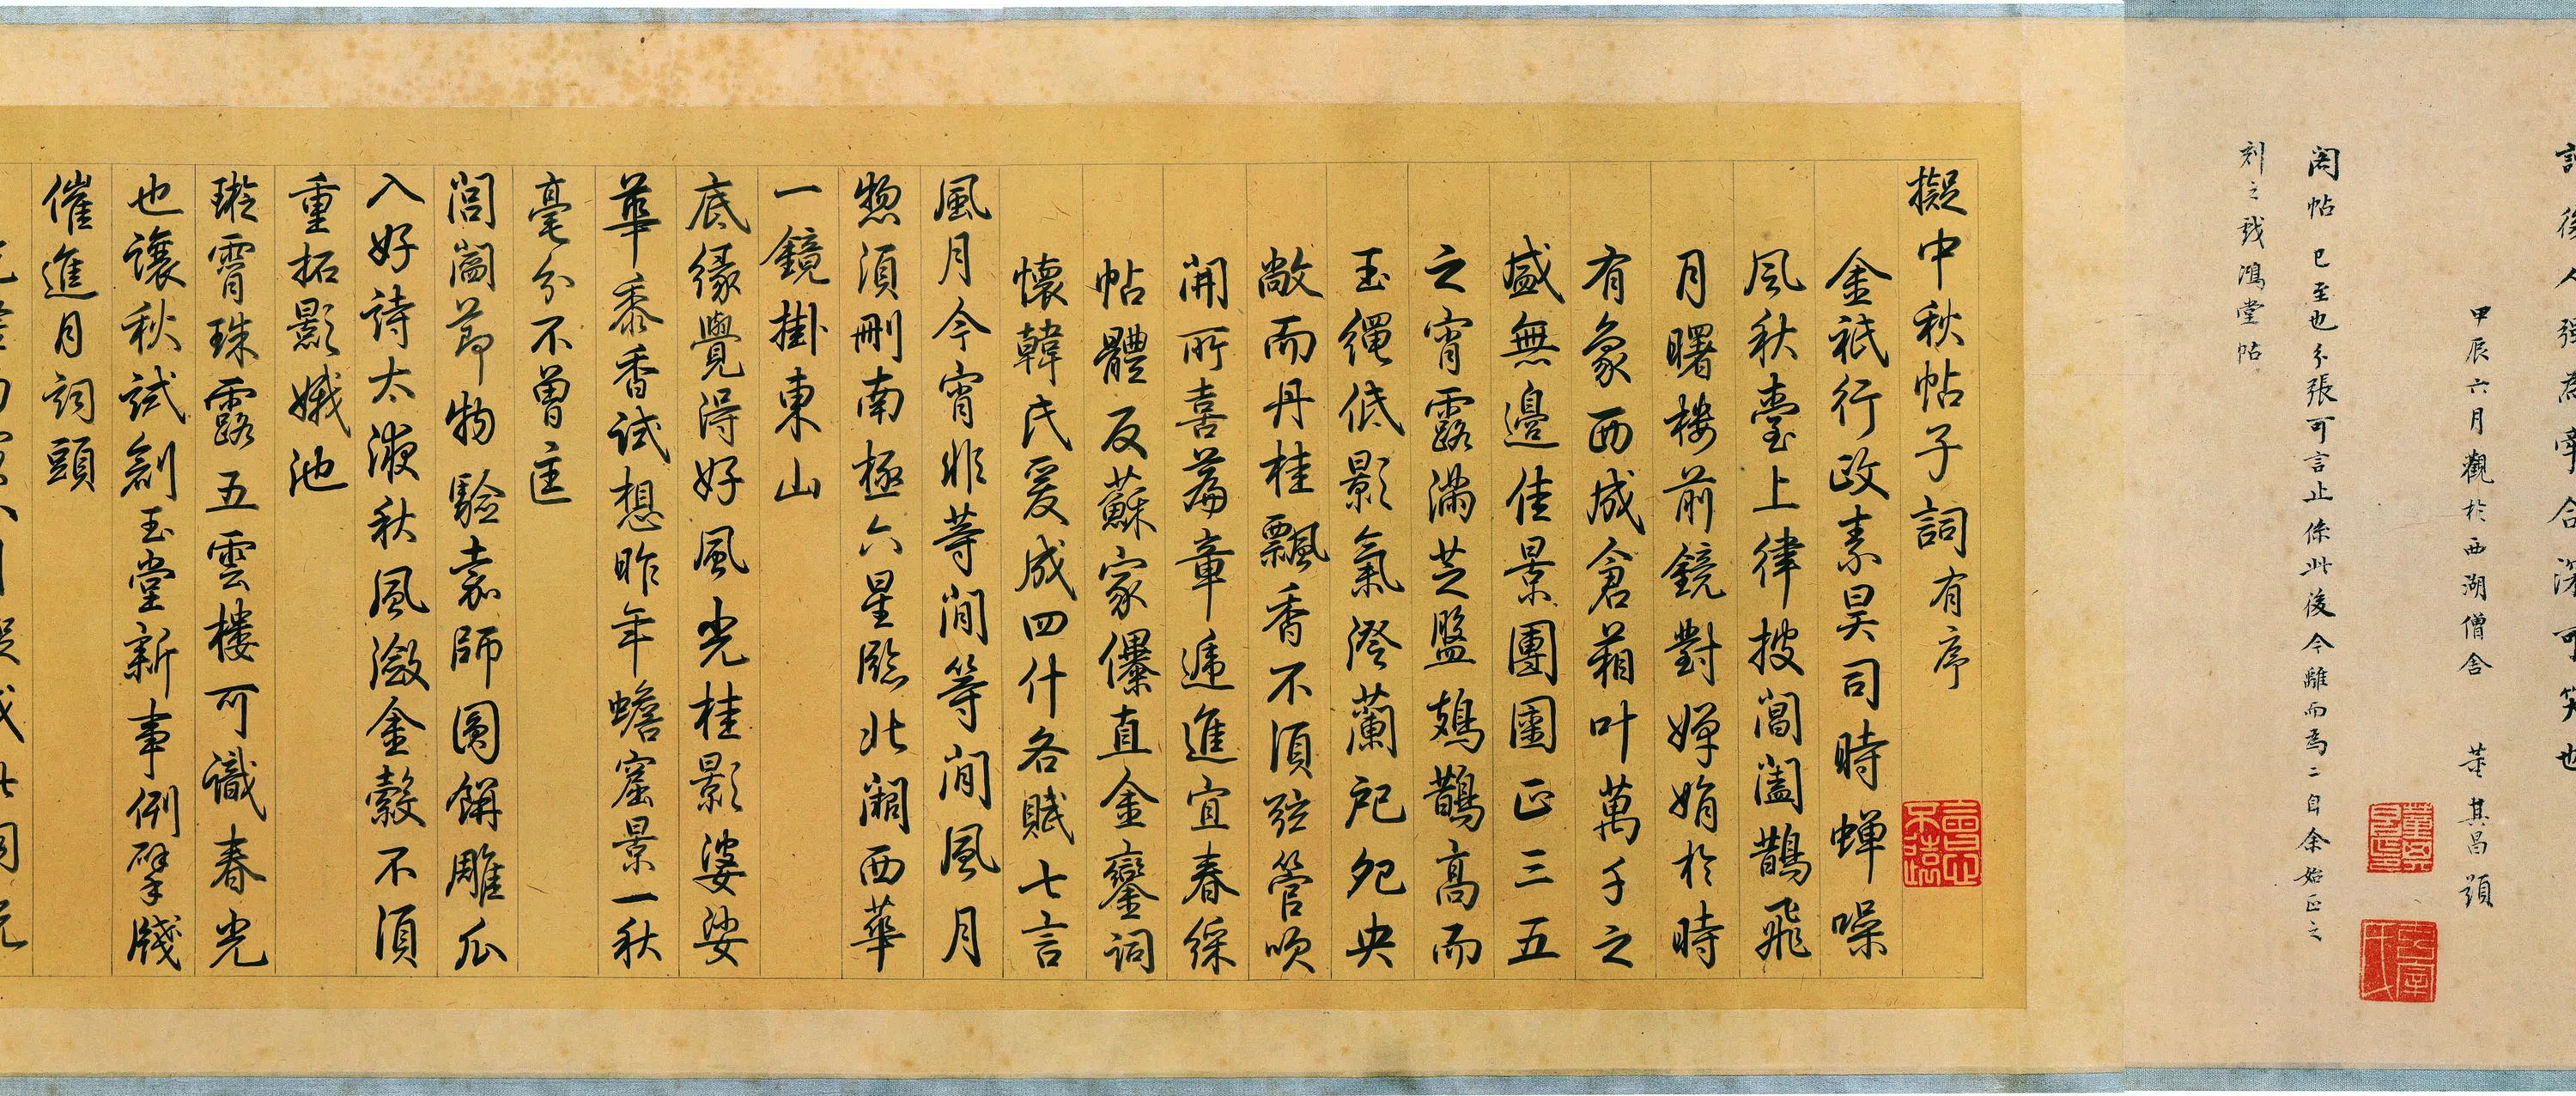 甲辰六月觀於西湖僧舍 董其昌題
閣帖 已至也分張可言止係此後今離而為二自余始正之
刻之戲鴻堂帖
擬中秋帖子詞有序
金祇行政素昊司時蟬噪
風秋臺上律披閶闔鵲飛
月曙樓前鏡對嬋娟於時
有象西成倉箱叶萬千之
盛無邊佳景團圞正三五
之宵露滿芝盤鳷鵲高而
玉繩低影氣澄蘭戺夗央
敞而丹桂飄香不須弦管吹
開所喜篇章遞進宜春綵
帖體反蘇家儤直金鑾詞
懷韓氏爰成四什各賦七言
風月今宵非等閒等閒風月
惣須刪南極六星臨北闕西華
一鏡掛東山
底緣覺得好風光桂影婆娑
華黍香試想昨年蟾窟景一秋
毫分不曾差
閶闔節物驗袁師圓餅雕瓜
入好詩太液秋風瀲金縠不須
重拓影娥池
璇霄珠露五雲樓可識春光
也讓秋試創玉堂新事例擘牋
催進月詞頭